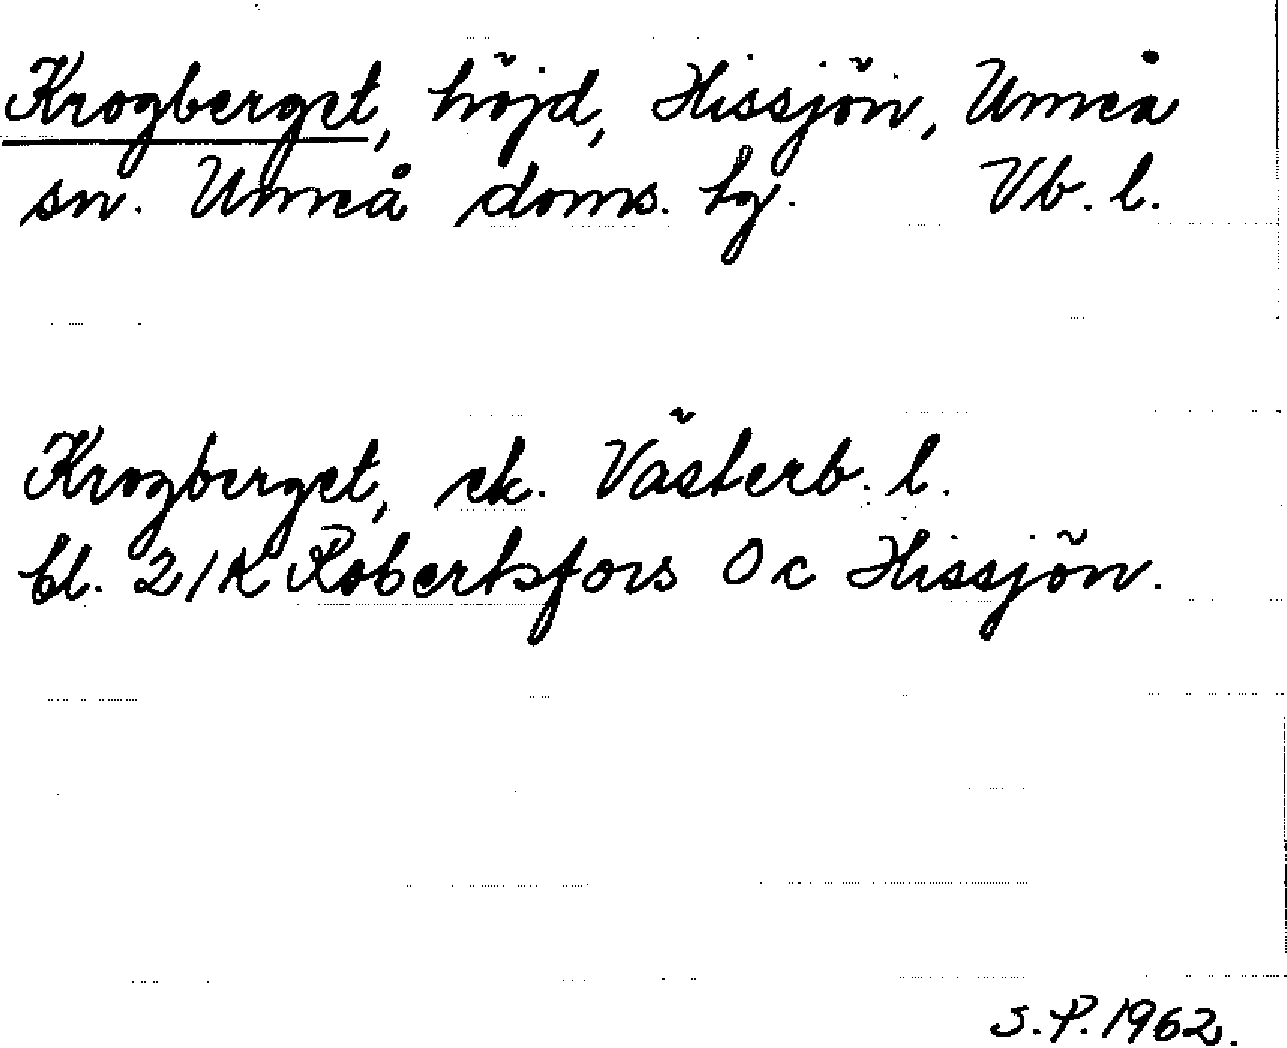 Krogberget, höjd, Hissjön, Umeå
sn. Umeå doms. hg. Vb. l.
Krogberget, ek. Västerb. l.
bl. 21K Robertsfors 0 c Hissjön.
S.P. 1962.